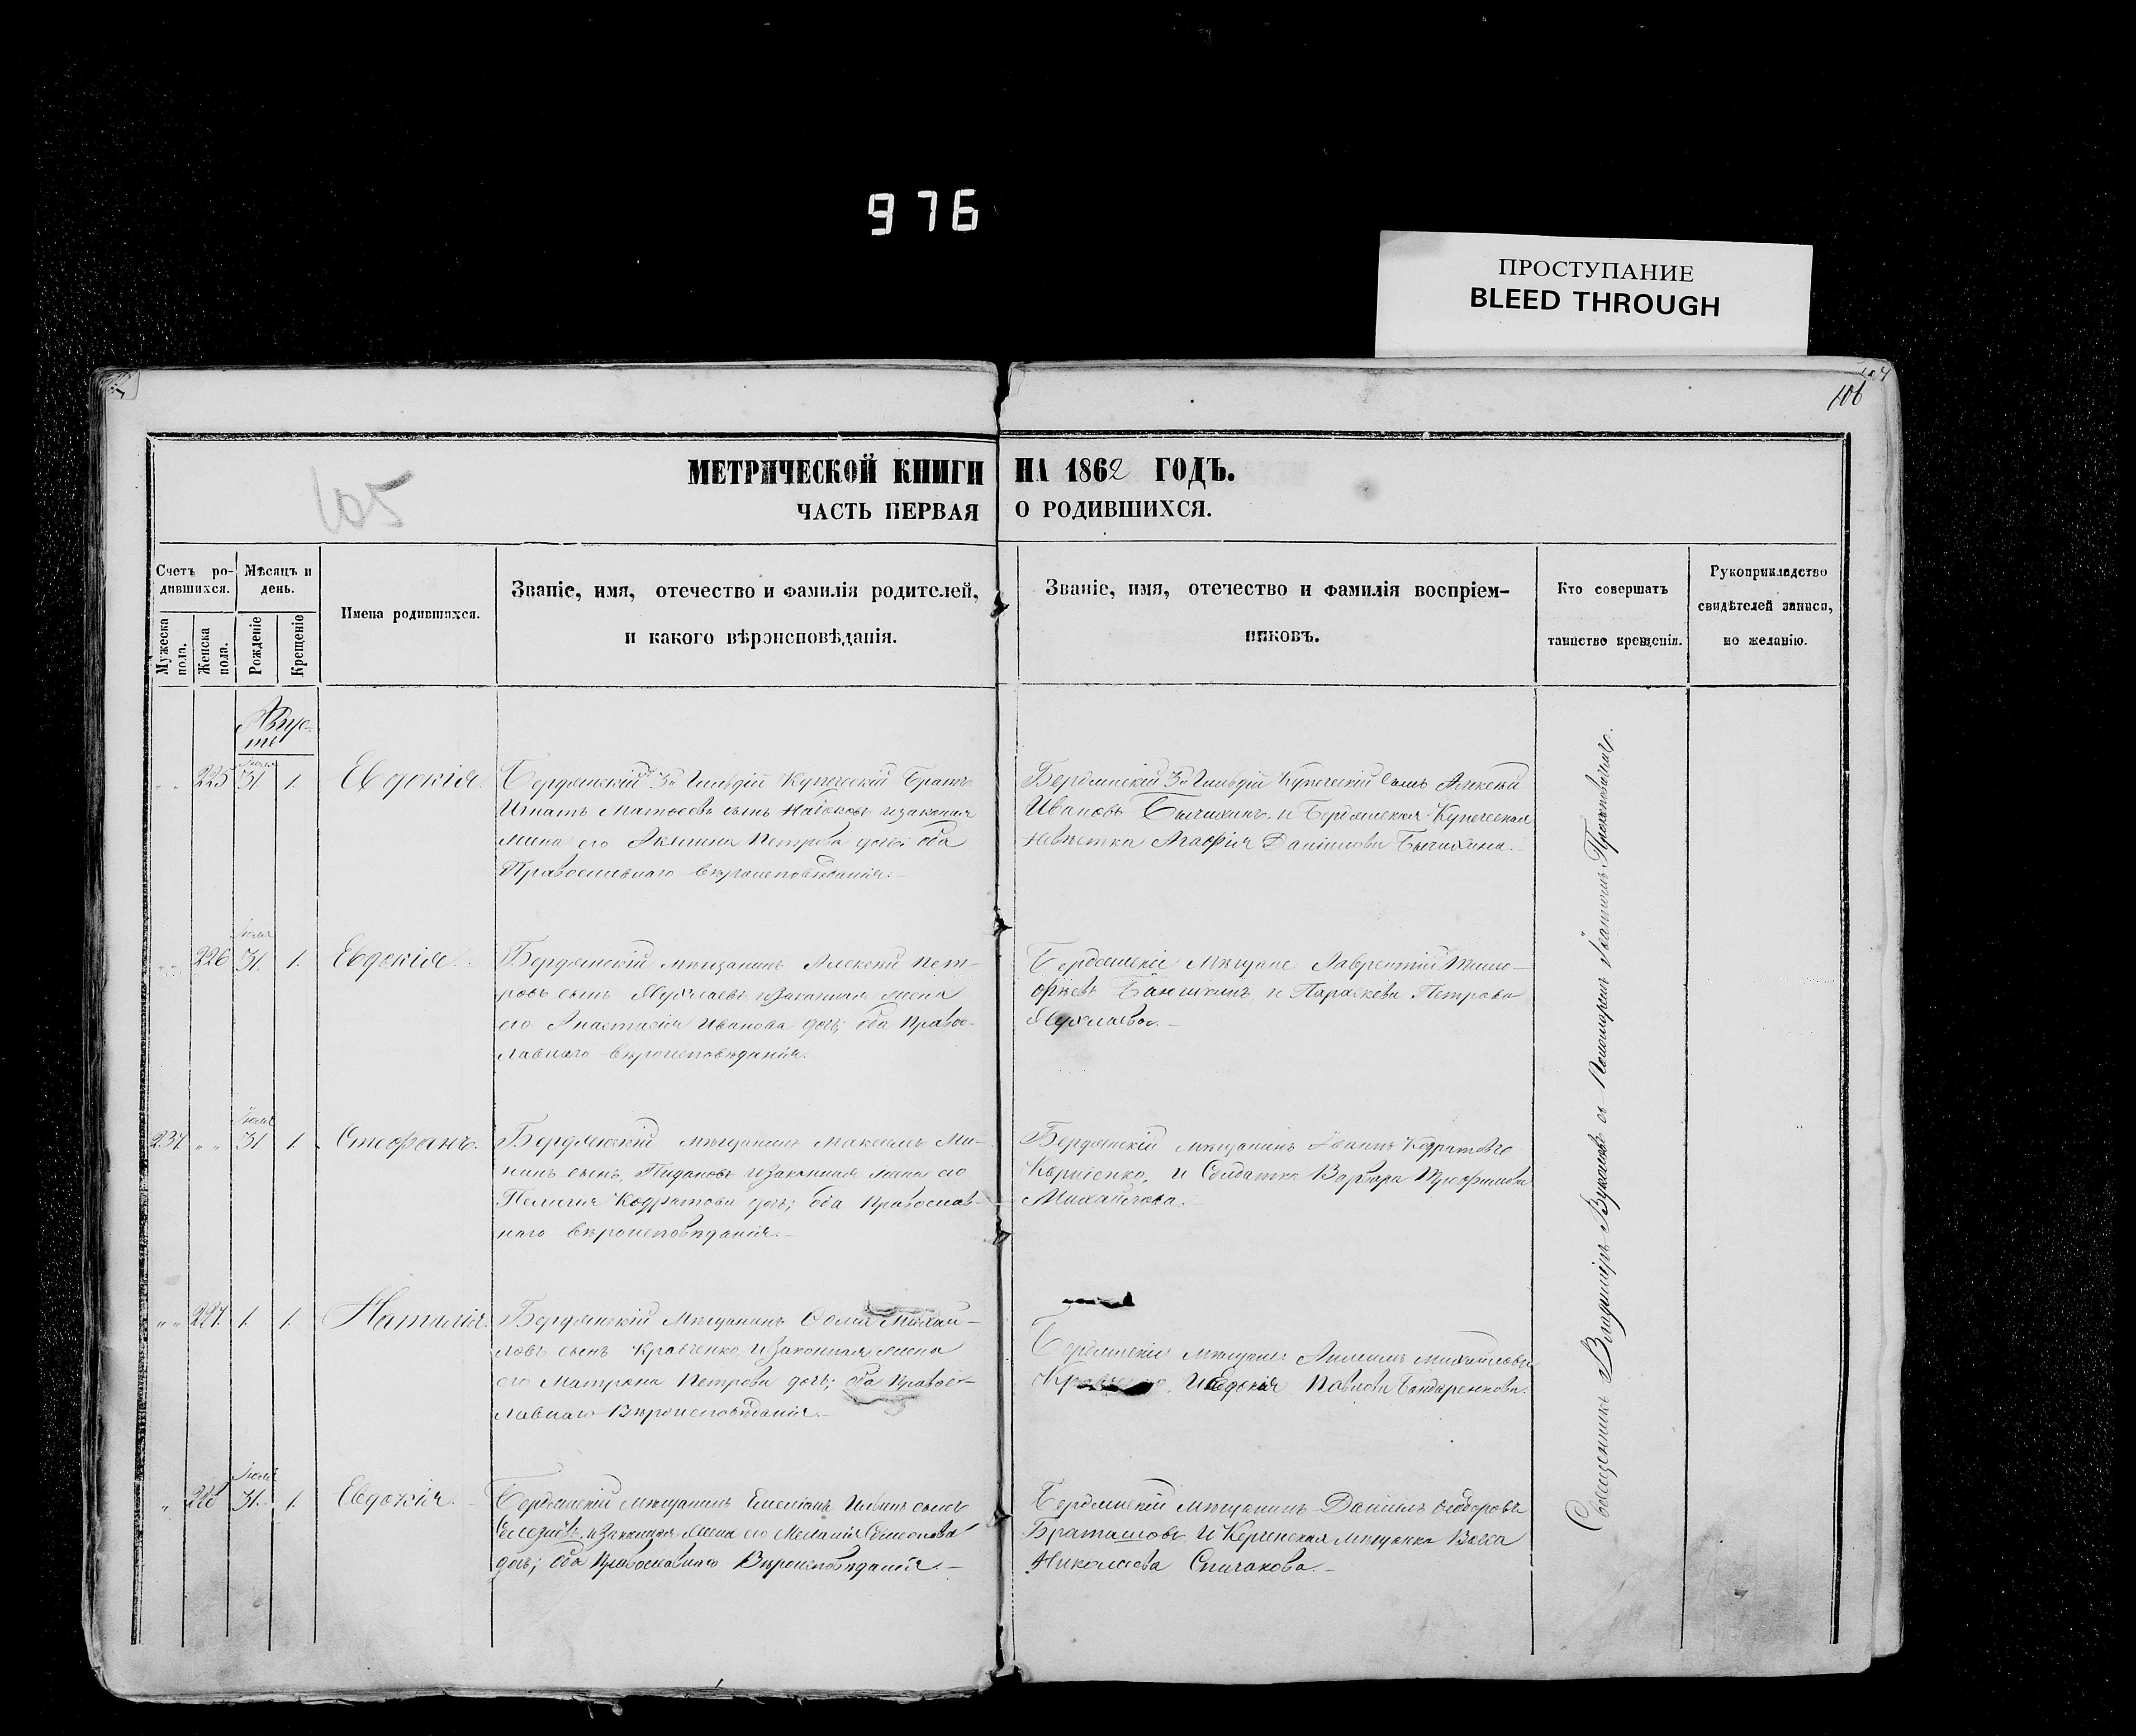 976
ПРОСТУПАНИЕ
BLEED THROUGH
106
105
МЕТРИЧЕСКОЙ КНИГИ НА 1862 ГОДЪ.
ЧАСТЬ ПЕРВАЯ О РОДИВШИХСЯ.
Счетъ ро-
дившихся.
Мужеска пола.
Женска пола.
Мѣсяцъ и
день.
Рожденіе
Крещеніе
Имена родившихся.
Званіе, имя, отечество и фамилія родителей,
и какого вѣроисповѣданія.
Званіе, имя, отечество и фамилія воспріем-
никовъ.
Кто совершалъ
таинство крещенія.
Рукоприкладство
свидѣтелей записи,
по желанію.
Авгус-
тъ
225 Іюля 31. 1. Евдокія.
Бердянскій 3й Гильдіи Купеческій Братъ
Игнатъ Матвеевъ сынъ и законная
жена его Акилина Петрова дочь; оба
Православнаго вѣроисповѣданія.
Бердянскій 3й Гильдіи Купеческій сынъ Алексей
Ивановъ Бычихинъ и Бердянская Купеческая
Невѣстка Агафія Даніилова Бычихина.
226 Іюля 31. 1. Евдокія.
Бердянскій мѣщанинъ Алексей Пет-
ровъ сынъ и законная жена
его Анастасія Иванова дочь; оба Правос-
лавнаго вѣроисповѣданія.
Бердянскіе Мѣщане Лаврентій Тимо-
феевъ и Параскева Петрова
237. Іюля 31 1. Стефанъ.
Бердянскій мѣщанинъ Максимъ Ми-
нинъ сынъ, и законная жена его
Пелагія Кодратова дочь; оба Православ-
наго вѣроисповѣданія.
Бердянскій мѣщанинъ Іоаннъ Кодратовъ
Корніенко, и Солдатка Варвара Трофимова
Михайлова.
227. 1. 1. Наталія.
Бердянскій Мѣщанинъ Ѳома Михай-
ловъ сынъ Кравченко, и законная жена
его Матрона Петрова дочь; оба Правос-
лавнаго Вѣроисповѣданія.
Бердянскіе мѣщане Михайловъ
Кравченко, и Евдокія Павлова Бондаренкова.
228 Іюля 31. 1. Евдокія.
Бердянскій мѣщанинъ Емеліанъ Ильинъ сынъ
и законная жена его Меланія Симеонова
дочь; оба Православнаго Вѣроисповѣданія.
Бердянскій мѣщанинъ Даніилъ Ѳеодоровъ
Браташовъ, и Керченская мѣщанка Васса
Николаева Спичакова.
Священникъ Владиміръ съ Пономаремъ Іоанномъ